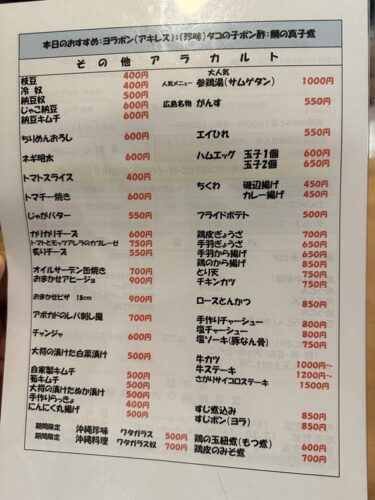 本日のおすすめ:ヨラポン(アキレス):(珍味)タコの子ポン酢:鯛の真子煮
その他アラカルト
枝豆 400円
冷奴 400円
納豆奴 500円
じゃこ納豆 600円
納豆キムチ 600円
ちりめんおろし 600円
ネギ明太 600円
トマトスライス 400円
トマチー焼き 600円
じゃがバター 550円
かりかりチーズ 600円
トマトとモッツアレラのカプレーゼ 750円
炙りチーズ 550円
オイルサーデン缶焼き 700円
おまかせアヒージョ 900円
おまかせピザ 18cm 900円
アボガドのレバ刺し風 700円
チャンジャ 600円
大将の漬けた白菜漬け 500円
自家製キムチ 500円
筍キムチ 500円
大将の漬けたぬか漬け 500円
手作りらっきょ 400円
にんにく丸揚げ 500円
期間限定 沖縄珍味 ワタガラス 500円
期間限定 沖縄料理 ワタガラス奴 700円
大人気
人気メニュー 参鶏湯(サムゲタン) 1000円
広島名物 がんす 550円
エイひれ 550円
ハムエッグ 玉子1個 600円
玉子2個 650円
ちくわ 磯辺揚げ 450円
カレー揚げ 450円
フライドポテト 500円
鶏皮ぎょうざ 700円
手羽ぎょうざ 650円
手羽から揚げ 650円
鶏のから揚げ 850円
とり天 750円
チキンカツ 750円
ロースとんかつ 850円
手作りチャーシュー 800円
塩チャーシュー 800円
塩ソーキ(豚なん骨) 750円
牛カツ 1000円~
牛ステーキ 1200円~
さがりサイコロステーキ 1500円
すじ煮込み 850円
すじポン(ヨラ) 850円
鶏の玉紐煮(もつ煮) 600円
鶏皮のみそ煮 700円